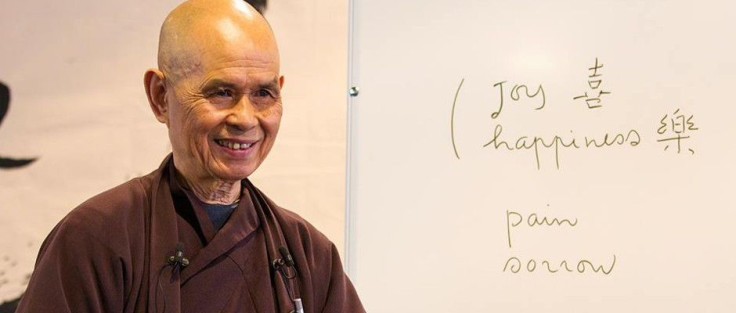 ( Joy 喜
happiness 樂
pain
sorrow